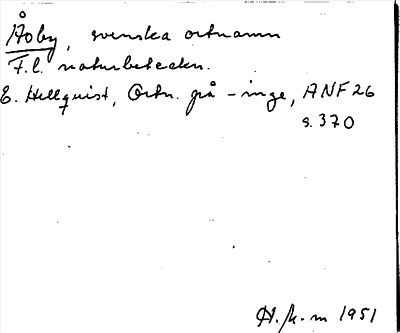 Åby, svenska ortnamn
F.l. naturbeteckn.
E. Hellquist, Ortn. på -inge, ANF 26
s. 370
H. fk-m 1951